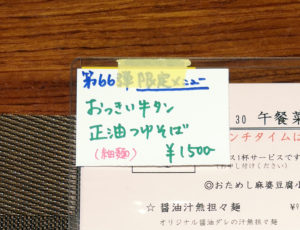 第66弾 限定メニュー
おっきい牛タン
正油つゆそば
(細麺) ¥1500
30 午餐菜
ンチタイムに
ス1杯サービスです
◎おためし麻婆豆腐小
☆ 醤油汁無担々麺
オリジナル醤油ダレの汁無担々麺